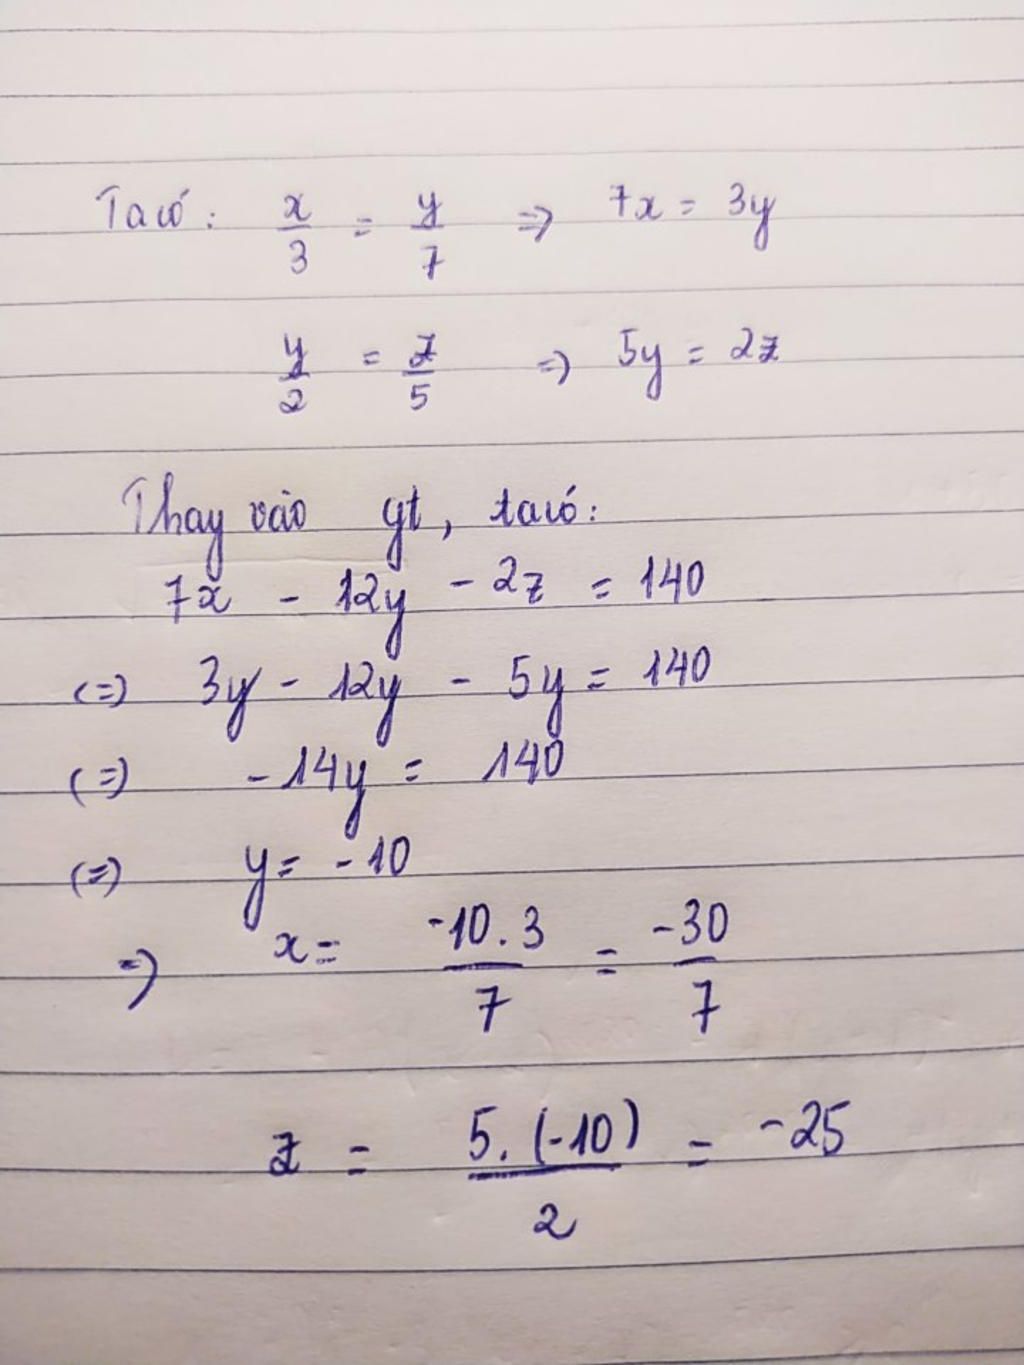 Ta có: x/3 = y/7 => 7x = 3y
y/2 = z/5 => 5y = 2z
Thay vào gt, ta có:
7x - 12y - 2z = 140
(=) 3y - 12y - 5y = 140
(=) -14y = 140
(=) y = -10
=) x = -10.3/7 = -30/7
z = 5.(-10)/2 = -25